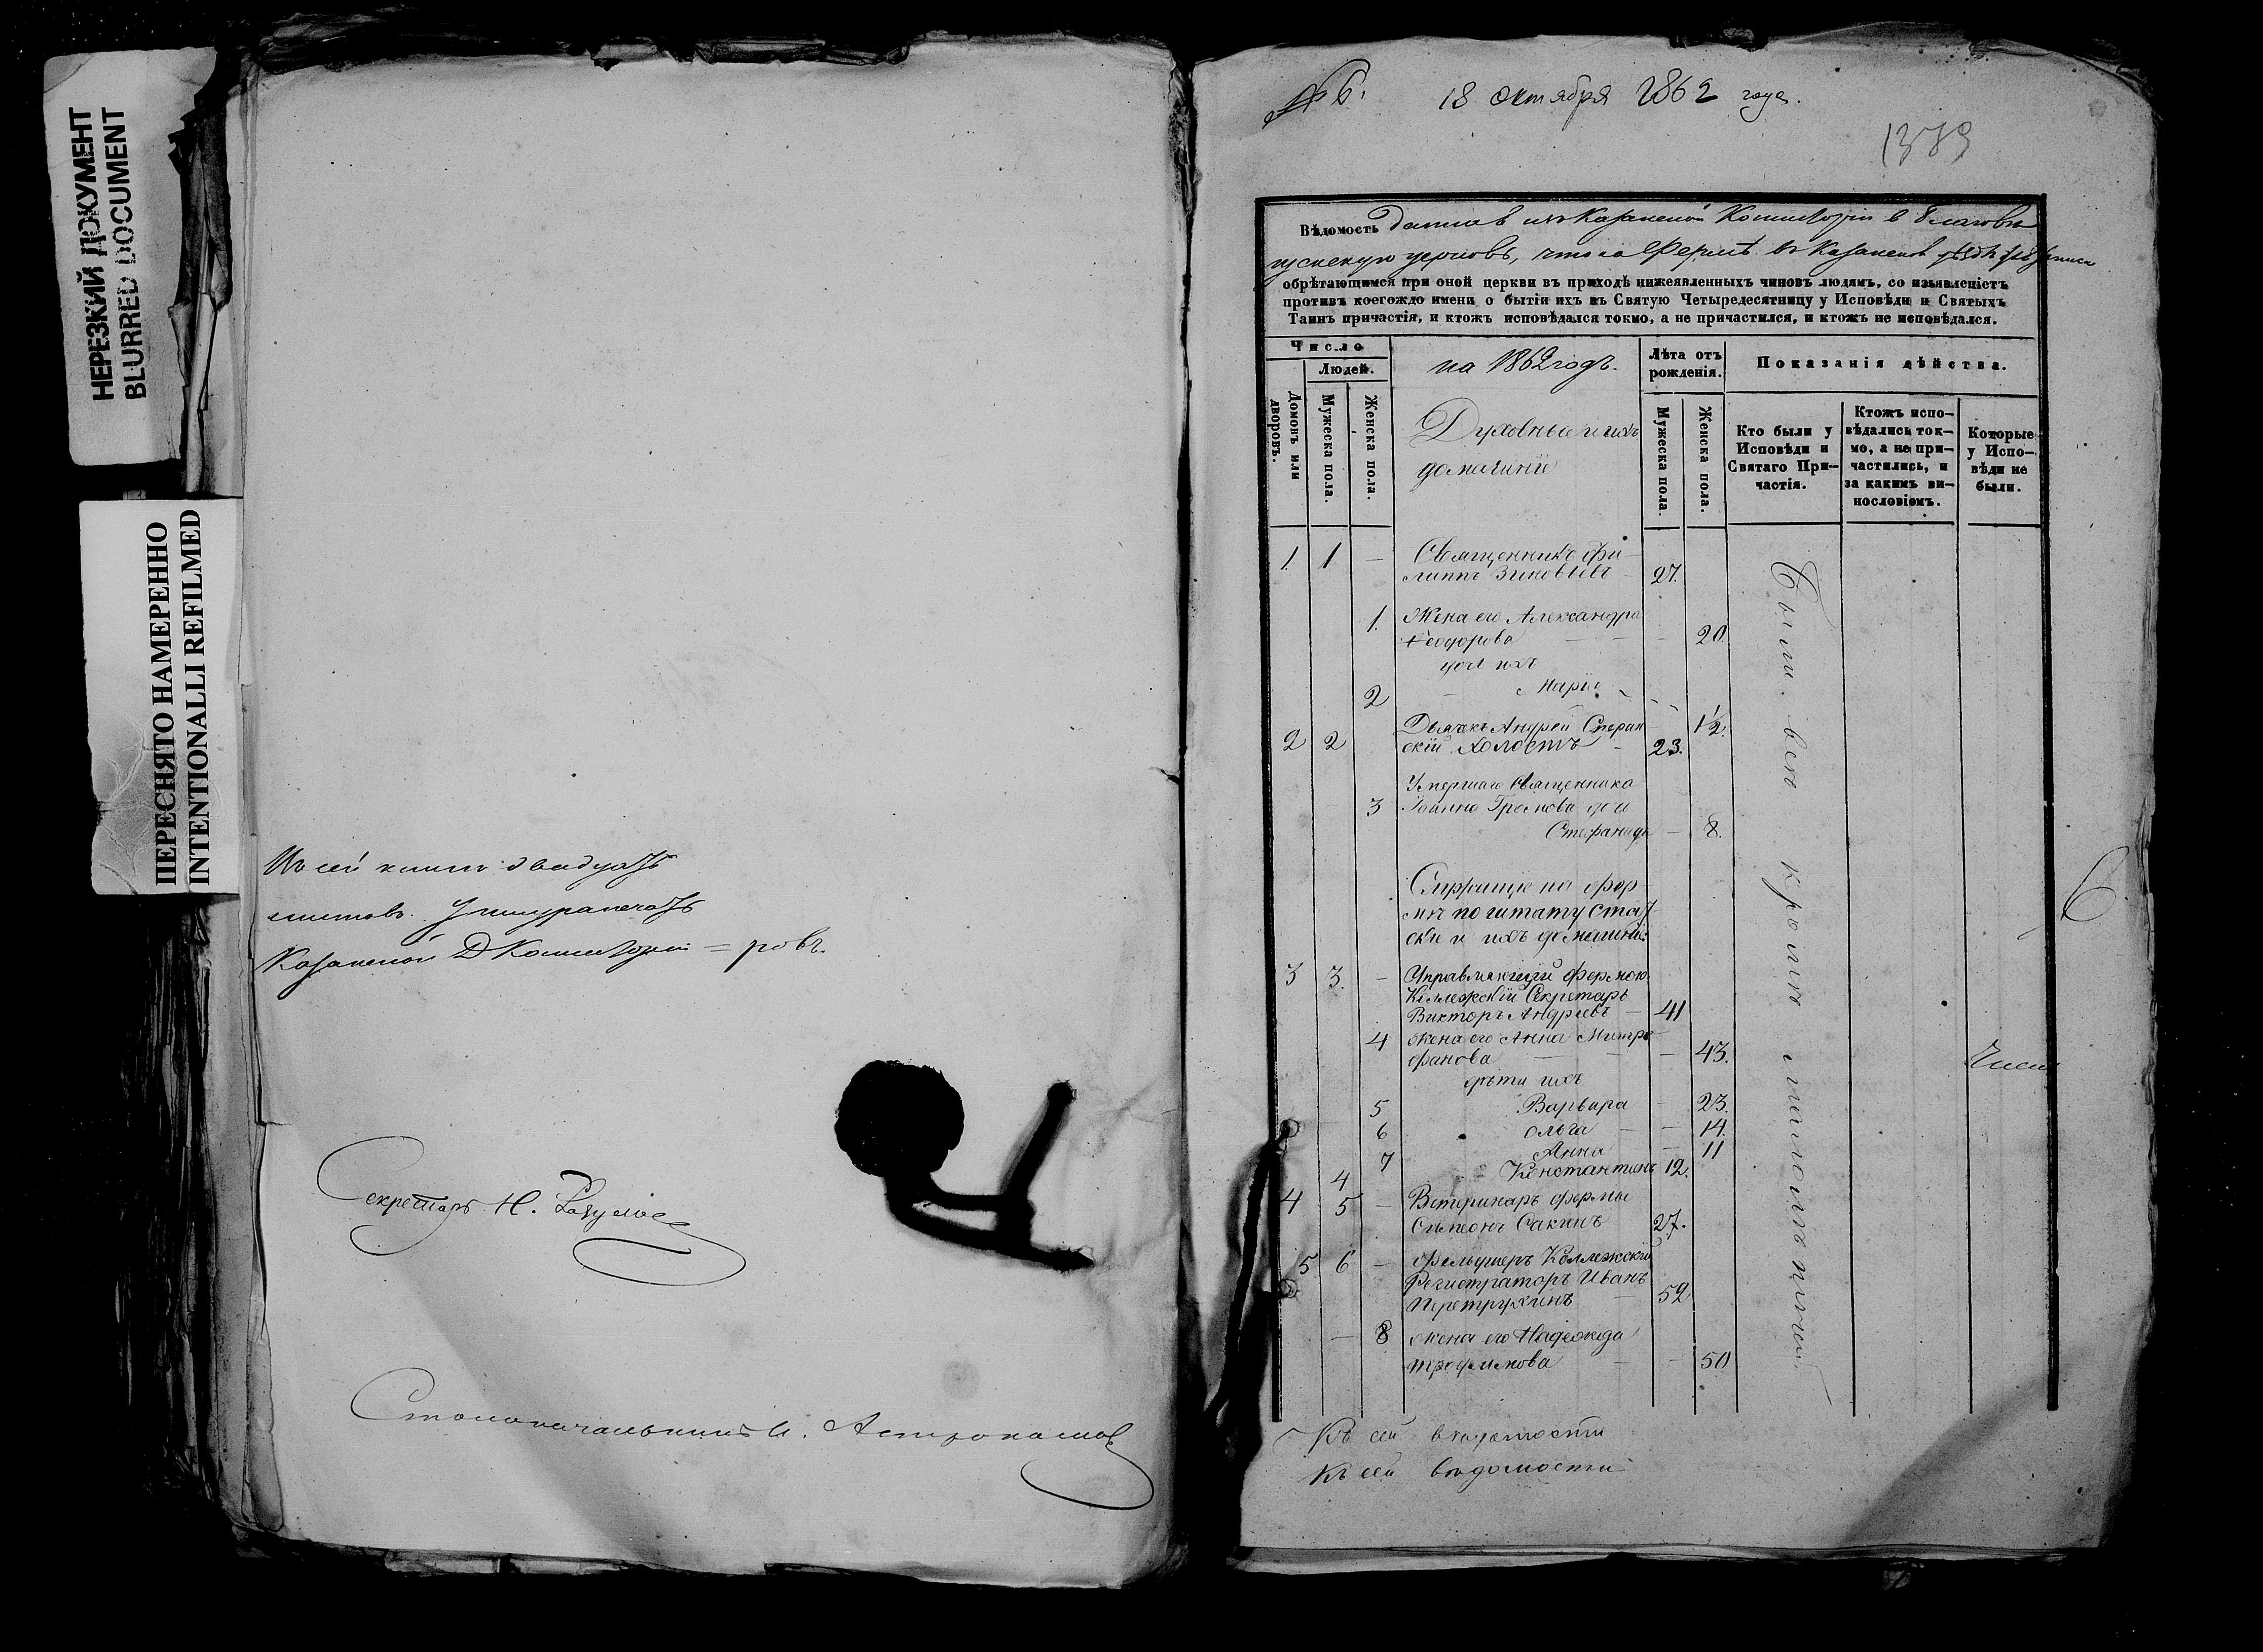 НЕРЕЗКИЙ ДОКУМЕНТ
BLURRED DOCUMENT
ПЕРЕСНЯТО НАМЕРЕННО
INTENTIONALLI REFILMED
Въ сей книгѣ двадцать
листовъ.
Казанской Д Консисторіи = ровъ.
Секретарь Н.
Столоначальникъ И. Астрономовъ
№ 6. 18 октября 1862 года.
1379
Вѣдомость данная изъ Казанской Консисторіи в Благовѣ
щенскую церковь, что на Фермѣ въ Казанскомъ уѣздѣ для записи
обрѣтающимся при оной церкви въ приходѣ нижеявленныхъ чиновъ людямъ, со изъявленіетъ
противъ коегождо имени о бытіи ихъ въ Святую Четыредесятницу у Исповѣди и Святыхъ
Таинъ причастія, и ктожъ исповѣдался токмо, а не причастился, и ктожъ не исповѣдался.
Число
Людей.
Домовъ или дворовъ.
Мужеска пола.
Женска пола.
на 1862 годъ.
Духовные и ихъ
домашніе
Лѣта отъ рожденія.
Мужеска пола.
Женска пола.
Показанія дѣйства.
Кто были у Исповѣди и Святаго При-
частія.
Ктожъ испо-
вѣдались ток-
мо, а не при-
частились, и
за какимъ ви-
нословіемъ.
Которые
у Испо-
вѣди не
были.
1. 1 — Священникъ Фи-
липпъ Зиновьевъ — 27.
1. Жена его Александра
Феодорова — 20.
дочь ихъ
2 Марія 1½.
2 2 Дьячекъ Андрей Сперан
скій холостъ — 23.
Умершаго священника
3 Іоанна Громова дочь
Стефанида — 8.
Служащіе на фер-
мѣ по штату статс
скіе и ихъ домашніе:
3 3. — Управляющій фермою
Коллежскій Секретарь
Викторъ Андреевъ — 41
4 жена его Анна Митро
фанова — 43.
дѣти ихъ
5 Варвара — 23.
6 Ольга — 14.
7 Анна — 11
4 Константинъ 12.
4 5 — Ветеринаръ фермы
Симеонъ Сакинъ 27.
5 6 — Фельдшеръ Коллежскій
Регистраторъ Иванъ
Перетрухинъ — 52
— 8 жена его Надежда
Трофимова — 50
Были всѣ кромѣ малолѣтнихъ
6
Къ сей вѣдомости
Къ сей вѣдомости